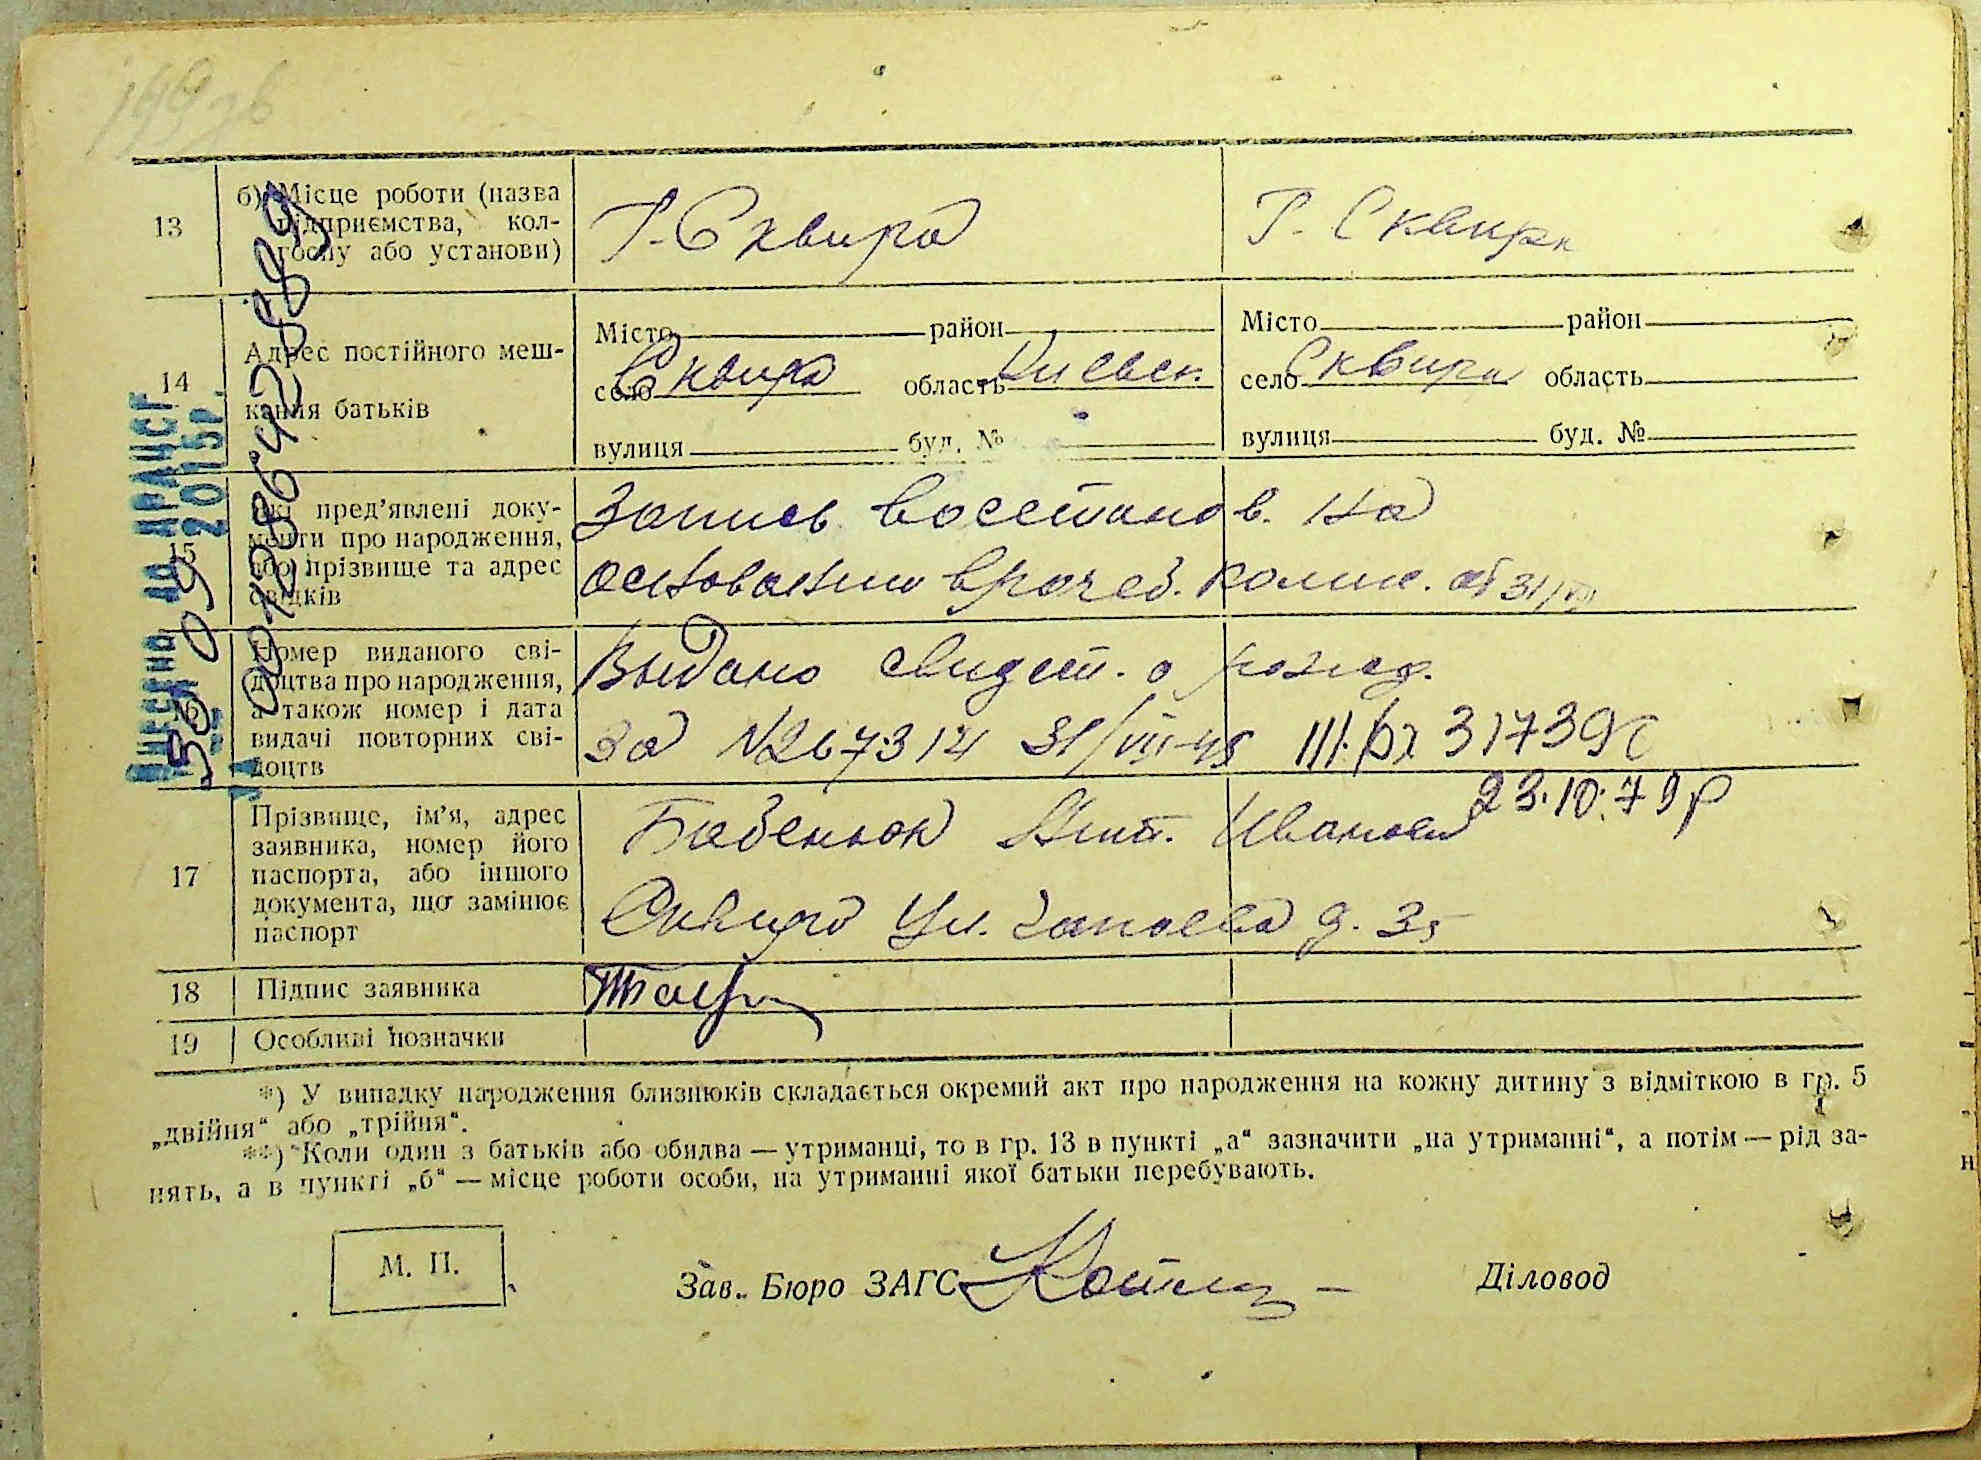 13
б) Місце роботи (назва
підприємства, кол-
госпу або установи)
Г. Сквира
Г. Сквира
14
Адрес постійного меш-
кання батьків
Місто район
село Сквира область Киевск.
вулиця буд. №
Місто район
село Сквира область
вулиця буд. №
15
Які пред’явлені доку-
менти про народження,
або прізвище та адрес
свідків
Запись восстанов. на
основании врачеб. комис. от 31/VIII
16
Номер виданого сві-
доцтва про народження,
а також номер і дата
видачі повторних сві-
доцтв
Выдано свидет. о рожд.
за N267314 31/VIII-45 III. 317390
23.10.79р
17
Прізвище, ім’я, адрес
заявника, номер його
паспорта, або іншого
документа, що замінює
паспорт
Бабенюк Ант. Иванович
Сквира ул. Чапаева д. 35
18
Підпис заявника
19
Особливі позначки
*) У випадку народження близнюків складається окремий акт про народження на кожну дитину з відміткою в гр. 5
„двійня“ або „трійня“.
**) Коли один з батьків або обидва — утриманці, то в гр. 13 в пункті „а“ зазначити „на утриманні“, а потім — рід за-
нять, а в пункті „б“ — місце роботи особи, на утриманні якої батьки перебувають.
М. П.
Зав. Бюро ЗАГС
Діловод
Внесена до ДРАЦСГ
2015р.
30 09
00128642889